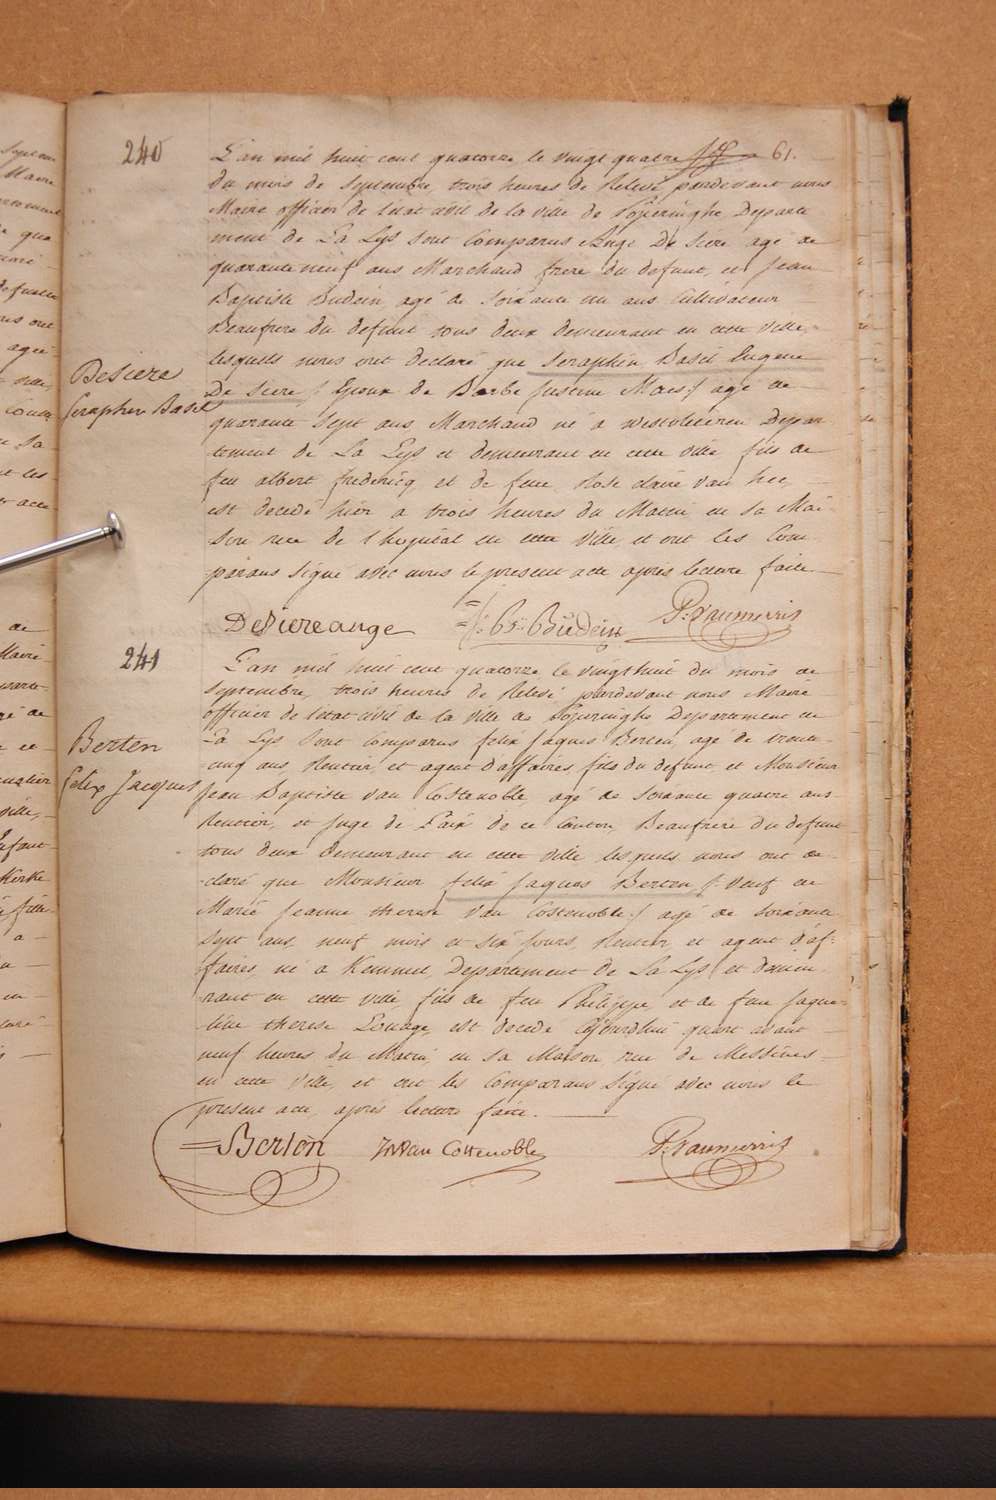 240
L'an mil huit cent quatorze le vingt quatre 61.
du mois de Septembre, trois heures de Relevé pardevant nous
Maire officier de l'état civil de la ville de Poperinghe Departe
ment de La Lys sont Comparus Ange De Siere agé de
quarante neuf ans Marchand frere du defunt, et Jean
Baptiste Budein agé de soixante un ans Cultivateur
Beaufrere du defunt tous deux demeurant en cette ville,
lesquels nous ont declaré que Seraphin Basil Eugene
De Siere /: Epoux de Barbe Justine Maes :/ agé de
quarante Sept ans Marchand né à westvleteren Depar
tement de La Lys et demeurant en cette ville fils de
feu albert fredericq et de feue Rose claire van hee,
est decedé hier a trois heures du Matin en sa Mai
son rue de l'hopital en cette ville et ont les Com
parans signé avec nous le present acte après lecture faite
Desiere
Seraphin Basil
DeSiere ange J: Bte Budein P. Vanmerris
241
L'an mil huit cent quatorze le vingt huit du mois de
Septembre, trois heures de Relevé pardevant nous Maire
officier de l'état civil de la ville de Poperinghe Departement de
La Lys sont Comparus felix Jaques Berten agé de trente
cinq ans Rentier, et agent d'affaires fils du defunt et Monsieur
Jean Baptiste van Costenoble agé de soixante quatre ans
Rentier, et Juge de Paix de ce Canton, Beaufrere du defunt
tous deux demeurant en cette ville lesquels nous ont de
claré que Monsieur felix Jaques Berten /: veuf de
Marie Jeanne therese van Costenoble :/ agé de soixante
sept ans, neuf mois et six jours, Rentier et agent d'af-
faires, né a Kemmel, Departement de La Lys et demeu-
rant en cette ville, fils de feu Philippe et de feue Jaque-
line therese Louage, est decedé aujourdhui quart avant
neuf heures du Matin, en sa Maison rue de Messines
en cette ville, et ont les Comparans signé avec nous le
present acte, après lecture faite.
Berten
Felix Jacques
Berten JB Van Costenoble P. Vanmerris